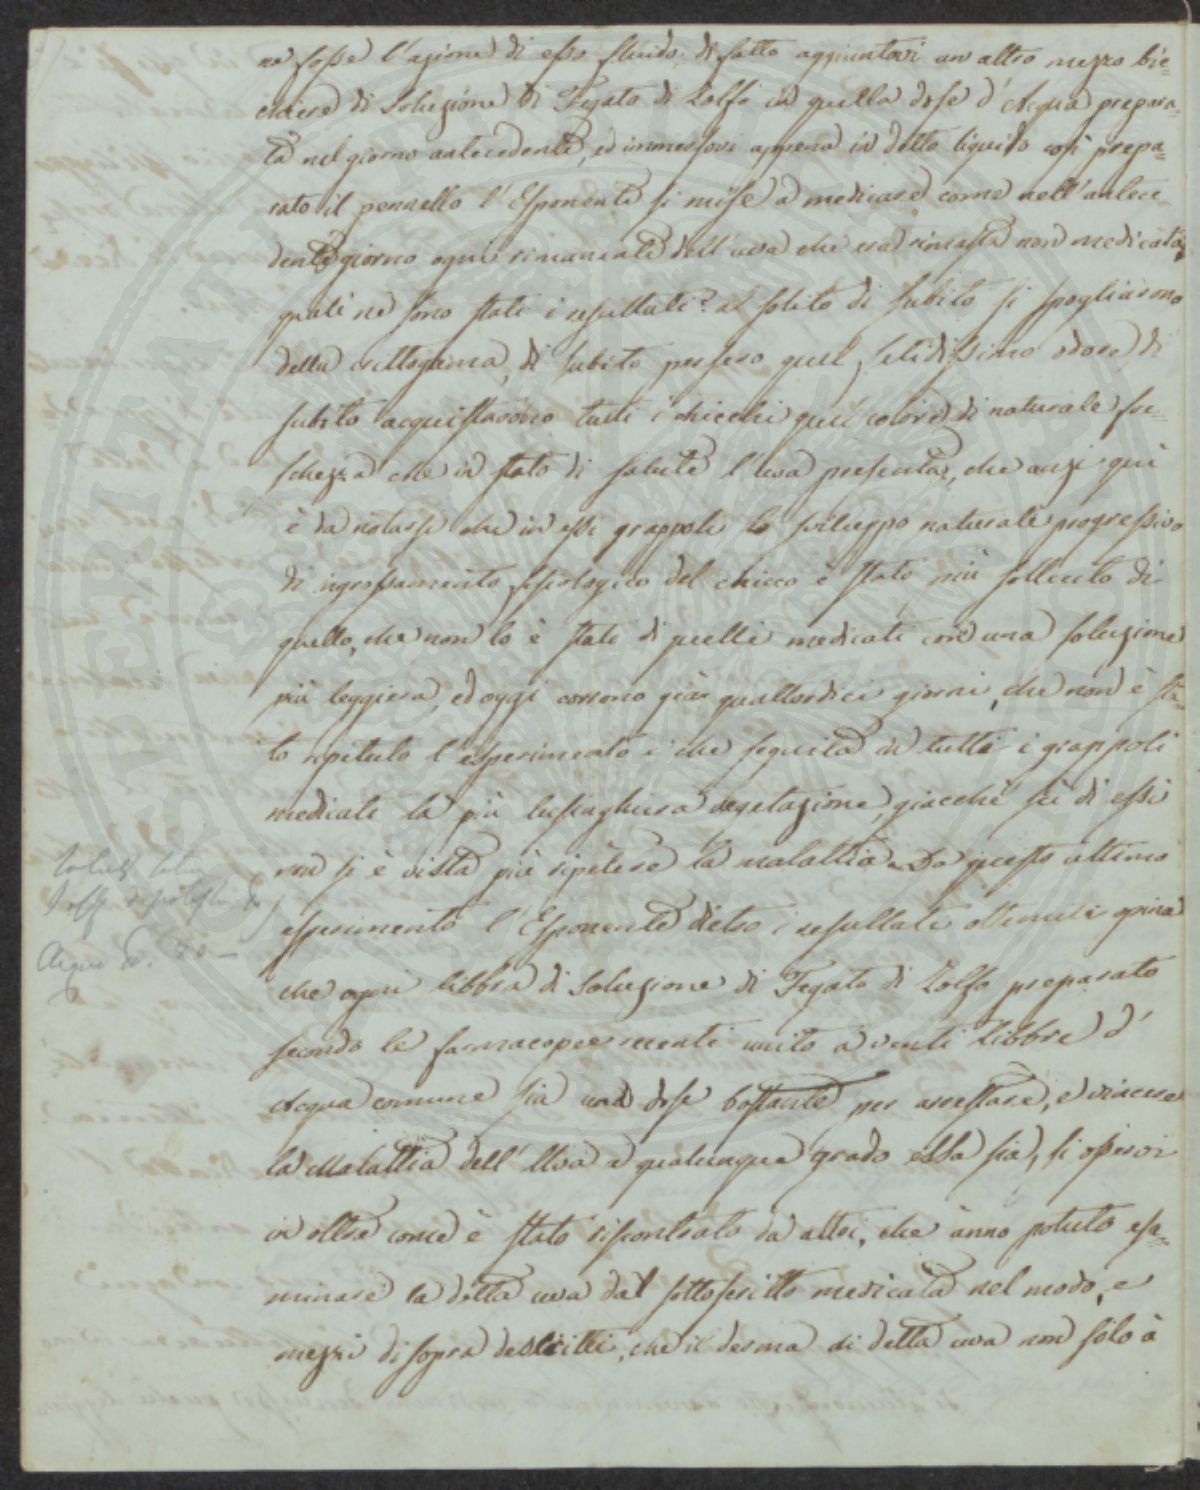 ne fosse l'azione di esso fluido: di fatto aggiuntovi un altro mezzo bic=
chiere di Soluzione di Fegato di Zolfo in quella dose d'Acqua prepara=
ta nel giorno antecedente, ed immersovi appena in detto liquido così prepa=
rato il pennello l'Esponente si mise a medicare come nell'antece
dente giorno ogni rimanente dell'uva che era rimasta non medicata,
quali ne sono stati i resultati? al solito di subito si spogliarono
della crittogama, di subito persero quel fetidissimo odore, di
subito acquistarono tutti i chicchi quel colore di naturale fre=
schezza che in stato di salute l'uva presenta, che anzi quì
è da notarsi che in essi grappoli lo sviluppo naturale progressivo
di ingrossamento fisiologico del chicco è stato più sollecito di
quello, che non lo è stato di quelli medicati con una soluzione
più leggiera, ed oggi corrono già quattordici giorni, che non è sta=
to ripetuto l'esperimento e che seguita in tutti i grappoli
medicati la più lusinghiera vegetazione, giacchè su di essi
non si è vista più ripetere la malattia. Da questo ultimo
esperimento l'Esponente dietro i resultati ottenuti opina
che ogni libbra di Soluzione di Fegato di Zolfo preparato
secondo le farmacopee recenti unito a venti Libbre d'
Acqua comune sia una dose bastante per arrestare, e vincere
la Malattia dell'Uva a qualunque grado essa sia, si osservi
in oltre come è stato riscontrato da altri, che ànno potuto esa=
minare la detta uva dal sottoscritto medicata nel modo, e
mezzi di sopra descritti, che il derma di detta uva non solo à
Acqua 20 —